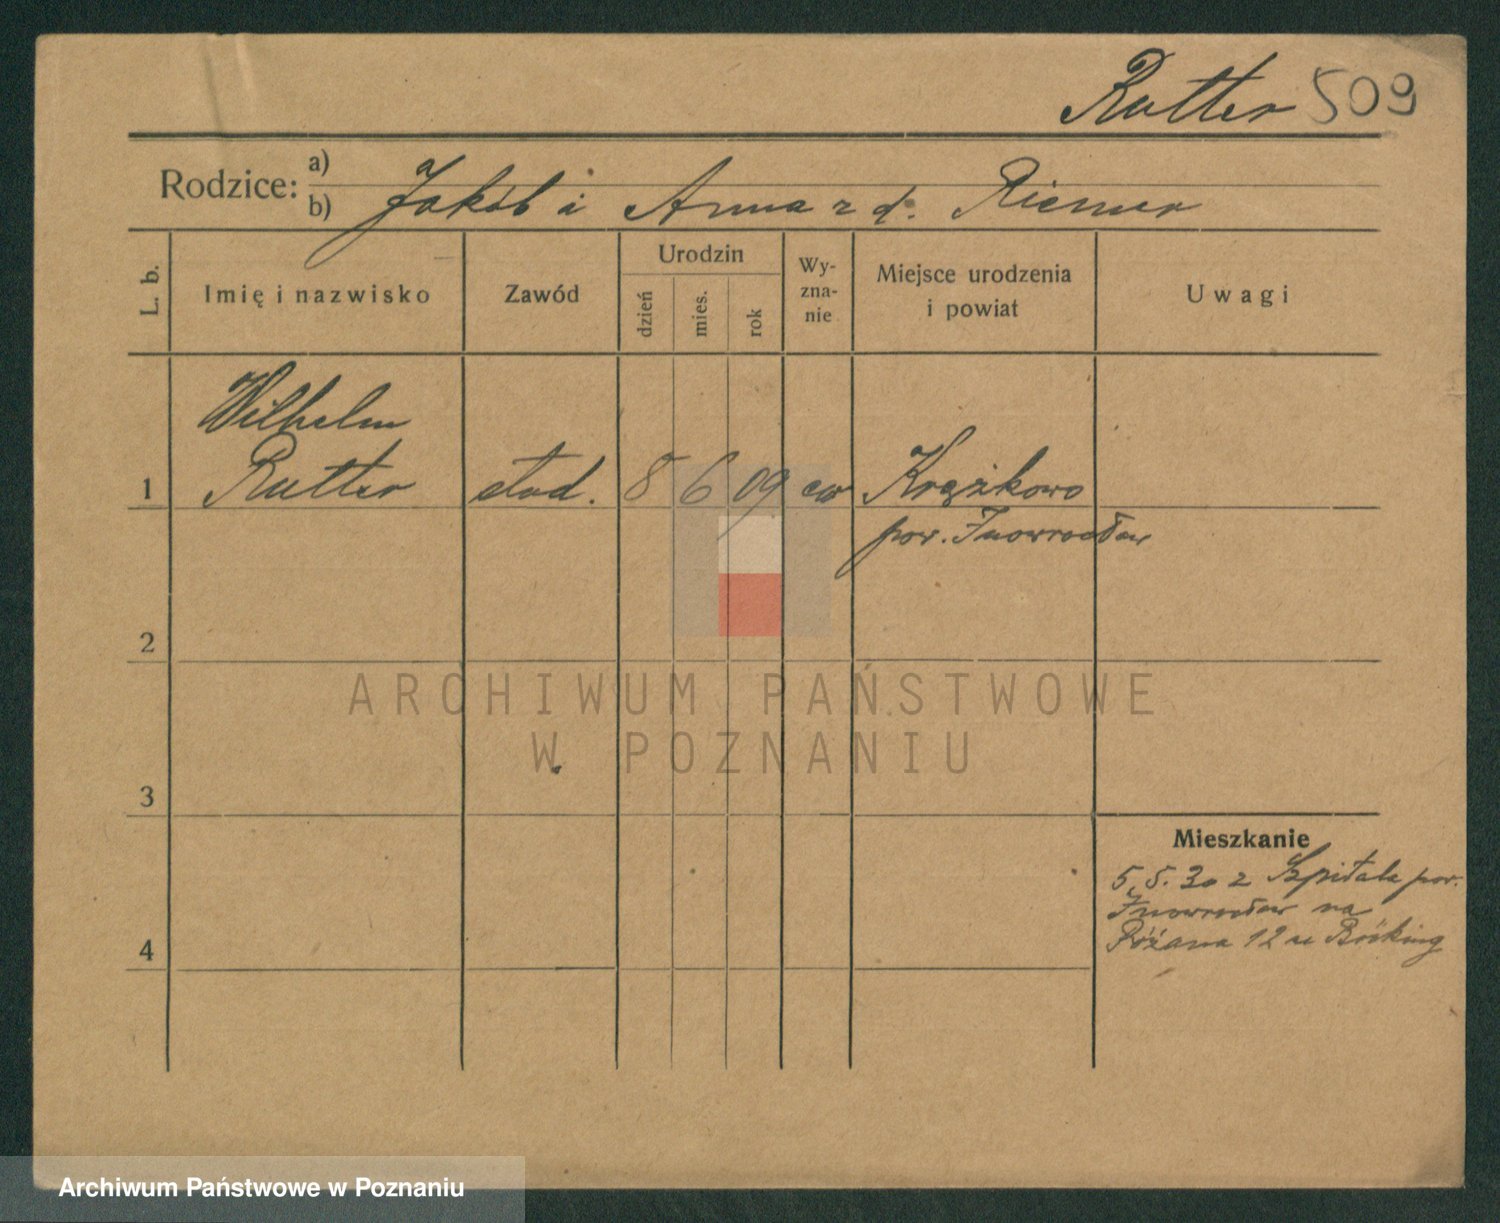 Rutter 509
Rodzice: a)
b) Jakób i Anna z d. Riemer
L. b.
Imię i nazwisko
Zawód
Urodzin
dzień
mies.
rok
Wy-
zna-
nie
Miejsce urodzenia
i powiat
Uwagi
Wilhelm
1 Rutter stud. 8 6 09 ew Krążkowo
pow. Inowrocław
2
ARCHIWUM PAŃSTWOWE
W POZNANIU
3
Mieszkanie
5.5.30 z Szpitala pow.
Inowrocław na
4 Różana 12 u Böcking
Archiwum Państwowe w Poznaniu